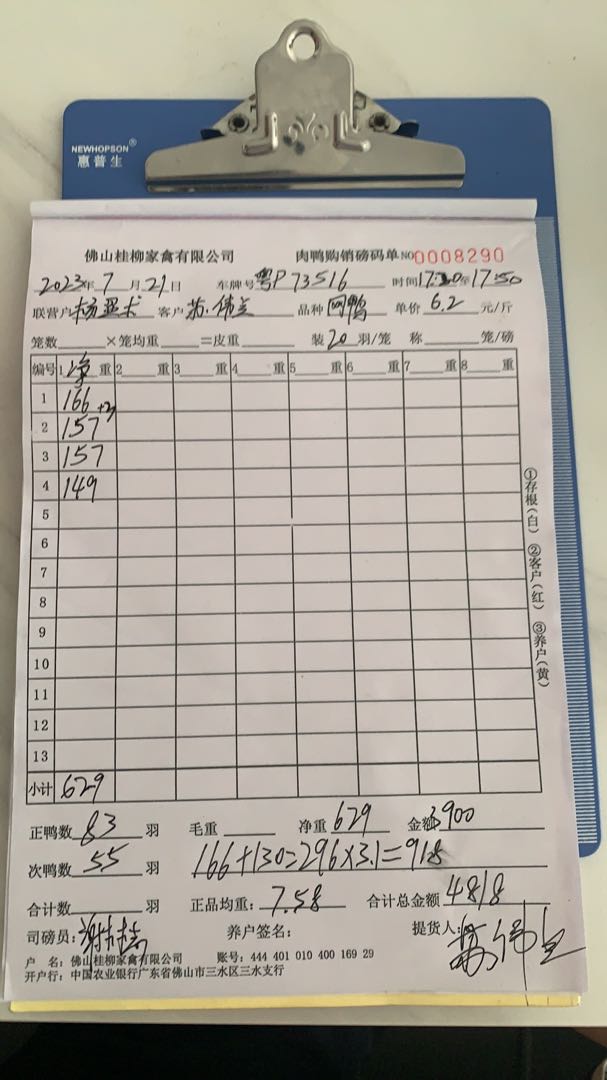 NEWHOPSON®
惠普生
佛山桂柳家禽有限公司 肉鸭购销磅码单 NO 0008290
2023年 7月 21日 车牌号 粤P73516 时间 17:20至17:50
联营户 客户 苏伟兰 品种 网鸭 单价 6.2 元/斤
笼数 ×笼均重 =皮重 装 20 羽/笼 称 笼/磅
编号 1 净 重 2 重 3 重 4 重 5 重 6 重 7 重 8 重
1 166 +3
2 157
3 157
4 149
5
6
7
8
9
10
11
12
13
小计 629
①存根(白) ②客户(红) ③养户(黄)
正鸭数 83 羽 毛重 净重 629 金额 3900
次鸭数 55 羽 166+130=296×3.1=918
合计数 羽 正品均重: 7.58 合计总金额 4818
司磅员: 养户签名: 提货人:
户 名: 佛山桂柳家禽有限公司 账号: 444 401 010 400 169 29
开户行: 中国农业银行广东省佛山市三水区三水支行